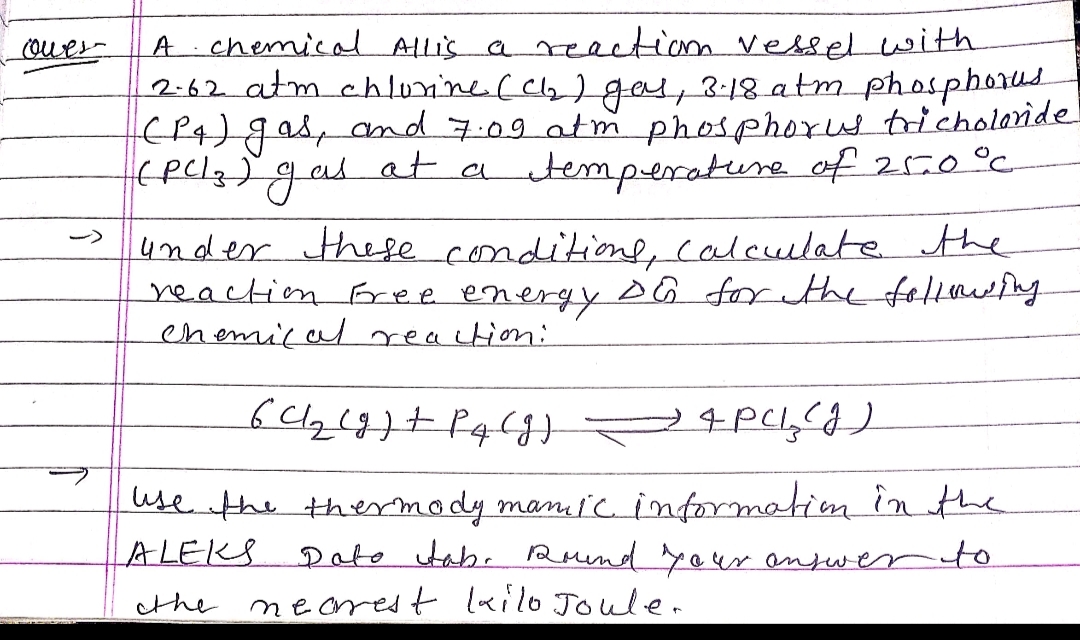 Ques-
A chemical Allis a reaction vessel with
2.62 atm chlorine (Cl2) gas, 3.18 atm phosphorus
(P4) gas, and 7.09 atm phosphorus tricholoride
(PCl3) gas at a temperature of 25.0 °C
→ Under these conditions, calculate the
reaction Free energy ΔG for the following
chemical reaction:
6Cl2(g) + P4(g) ⇌ 4PCl3(g)
→ Use the thermodymamic information in the
ALEKS Data tab. Round your answer to
the nearest kilo Joule.